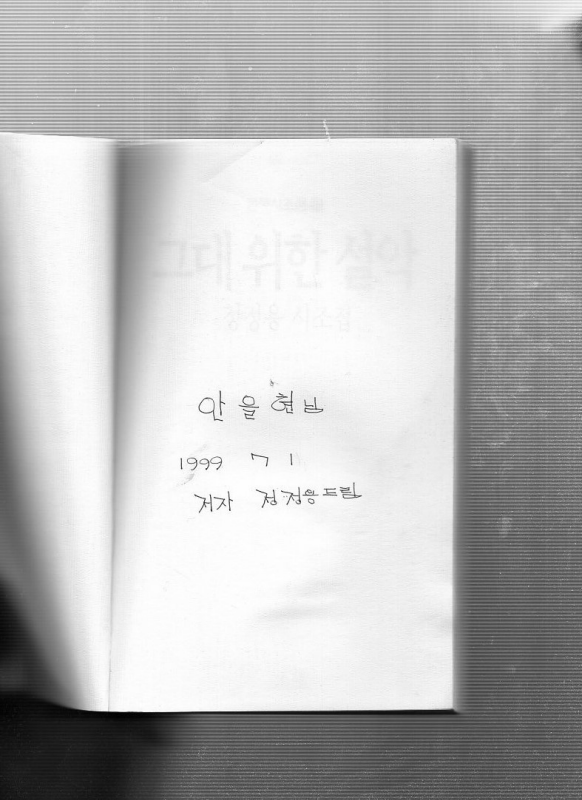 그대 위한 설악
시조집
안을현님
1999 7 1
저자 정정용 드림